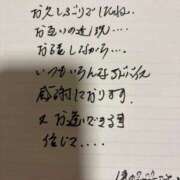 お久しぶりでしたね。
お互いの近況....
お話しながら...
いつもいろんな
感謝しております。
又お逢いできる
信じて....